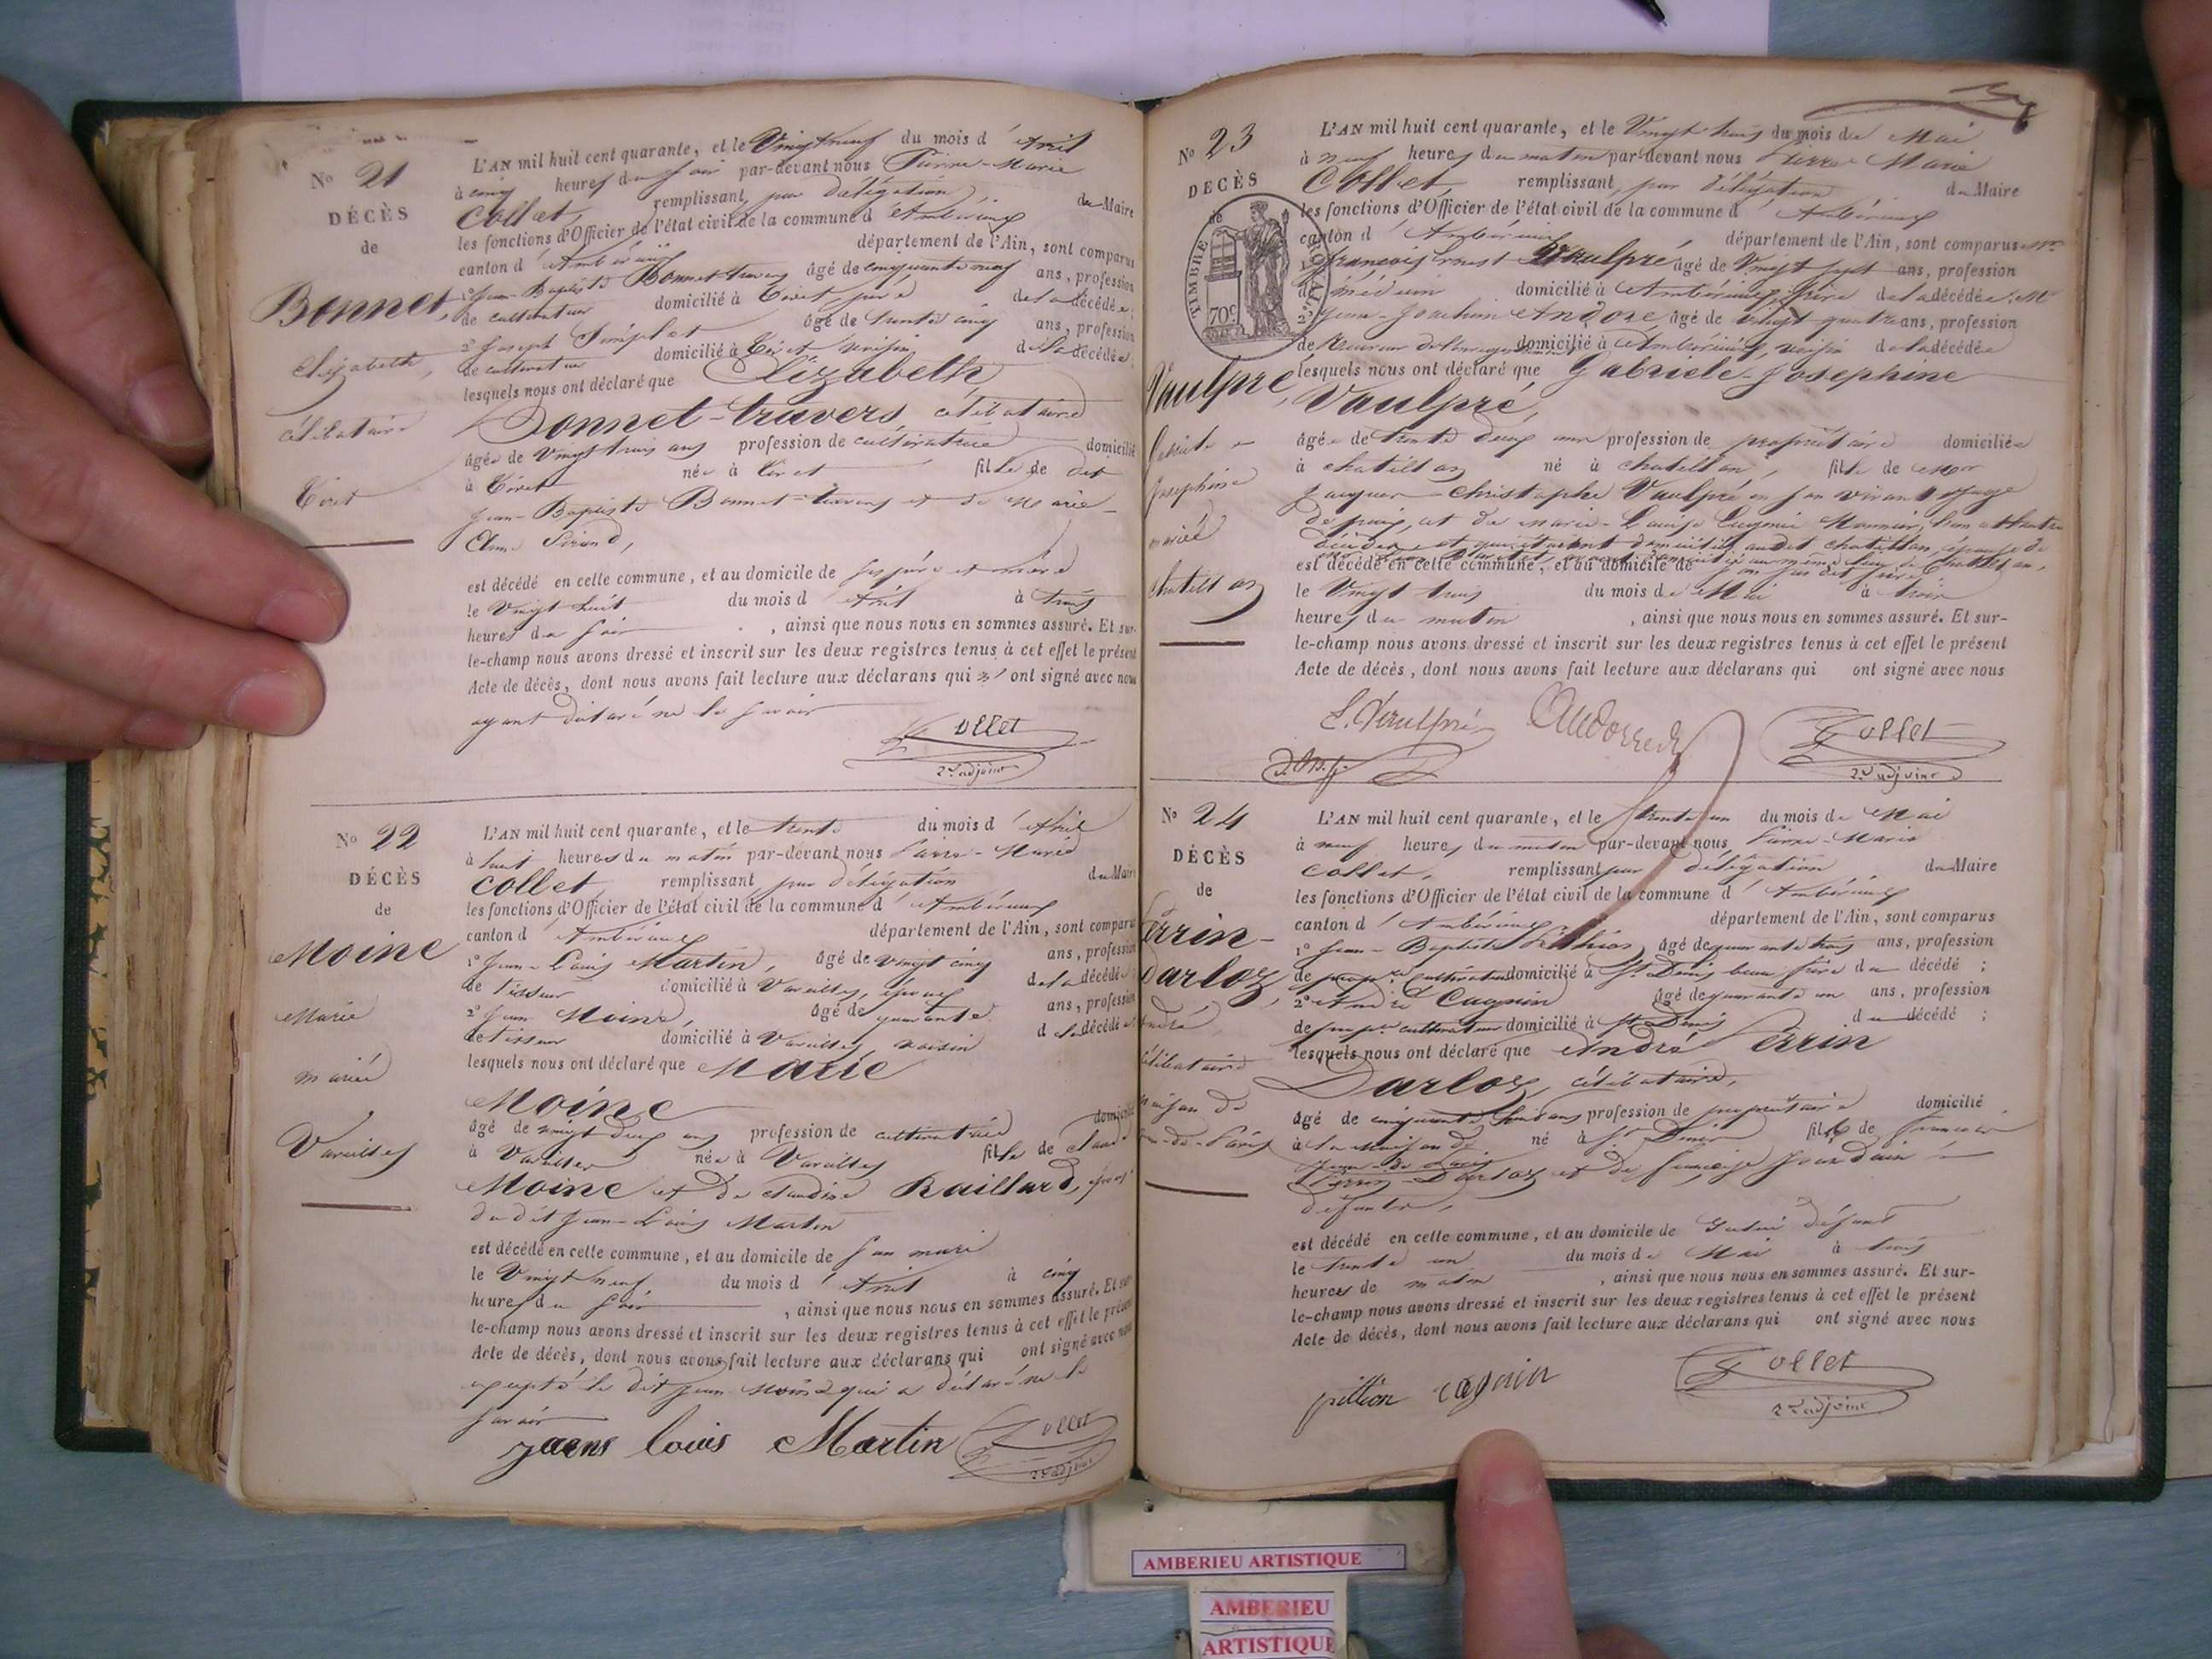 No 21
DÉCÈS
de
Bonnet,
Elizabeth,
célibataire
Tiret
L'AN mil huit cent quarante, et le Vingt neuf du mois d'Avril
à cinq heures du soir par-devant nous Pierre-Marie
Collet, remplissant par délégation du Maire
les fonctions d'Officier de l'état civil de la commune d'Ambérieux
canton d'Ambérieux département de l'Ain, sont comparus
1° Jean-Baptiste Bonnet-travers âgé de cinquante neuf ans, profession
de cultivateur domicilié à Tiret, père de la décédée;
2° Joseph âgé de trente cinq ans, profession
de cultivateur domicilié à Tiret voisin de la décédée;
lesquels nous ont déclaré que Elizabeth
Bonnet-travers célibataire
âgée de vingt trois ans profession de cultivatrice domicilié
à Tiret née à Tiret fille de dit
Jean-Baptiste Bonnet-travers et de Marie-
Anne Sirand,
est décédé en cette commune, et au domicile de ses père et mère
le Vingt huit du mois d'Avril à trois
heures du soir, ainsi que nous nous en sommes assuré. Et sur-
le-champ nous avons dressé et inscrit sur les deux registres tenus à cet effet le présent
Acte de décès, dont nous avons fait lecture aux déclarans qui n'ont signé avec nous
ayant déclaré ne le savoir
Collet
2d adjoint
No 22
DÉCÈS
de
Moine
Marie
mariée
Vareilles
L'AN mil huit cent quarante, et le trente du mois d'Avril
à huit heures du matin par-devant nous Pierre-Marie
Collet, remplissant par délégation du Maire
les fonctions d'Officier de l'état civil de la commune d'Ambérieux
canton d'Ambérieux département de l'Ain, sont comparus
1° Jean-Louis Martin, âgé de vingt cinq ans, profession
de tisseur domicilié à Vareilles, époux de la décédée
2° Jean Moine, âgé de quarante ans, profession
de tisseur domicilié à Vareilles, voisin de la décédée
lesquels nous ont déclaré que Marie
Moine
âgé de vingt deux ans profession de cultivatrice domicilié
à Vareilles née à Vareilles fille de Claude
Moine et de Claudine Raillard, épouse
du dit Jean-Louis Martin
est décédé en cette commune, et au domicile de son mari
le Vingt neuf du mois d'Avril à cinq
heures du soir, ainsi que nous nous en sommes assuré. Et sur-
le-champ nous avons dressé et inscrit sur les deux registres tenus à cet effet le présent
Acte de décès, dont nous avons fait lecture aux déclarans qui ont signé avec nous
excepté le dit Jean Moine qui a déclaré ne le
savoir
jaens louis Martin Collet
2d adjoint
No 23
DECÈS
de
TIMBRE ROYAL
70c
Vaulpré,
Gabriele
Josephine
mariée
Chatillon
L'AN mil huit cent quarante, et le Vingt trois du mois de Mai
à neuf heures du matin par-devant nous Pierre Marie
Collet, remplissant par délégation du Maire
les fonctions d'Officier de l'état civil de la commune d'Ambérieux
canton d'Ambérieux département de l'Ain, sont comparus Mr
1° françois Ernest Vaulpré âgé de Vingt sept ans, profession
de médecin domicilié à Ambérieux, frère de la décédée; Mr
2° Jean-Joachim Andoré, âgé de vingt quatre ans, profession
de domicilié à Ambérieux, voisin de la décédée
lesquels nous ont déclaré que Gabriele-Josephine
Vaulpré,
âgée de trente deux ans profession de propriétaire domiciliée
à chatillon né à chatillon, fille de Mr
jacques-christophe Vaulpré en son vivant Juge
de paix, et de Marie-Louise Eugenie Monnier,
décédée et qui étaient domiciliés audit chatillon, épouse de
est décédé en cette commune, et au domicile de son dit frère
le Vingt trois du mois de Mai à trois
heures du matin, ainsi que nous nous en sommes assuré. Et sur-
le-champ nous avons dressé et inscrit sur les deux registres tenus à cet effet le présent
Acte de décès, dont nous avons fait lecture aux déclarans qui ont signé avec nous
E. Vaulpré Collet
2d adjoint
No 24
DÉCÈS
de
Perrin-
Darloz,
André,
célibataire
maison de
L'AN mil huit cent quarante, et le trente un du mois de Mai
à neuf heures du matin par-devant nous Pierre-Marie
Collet, remplissant par délégation du Maire
les fonctions d'Officier de l'état civil de la commune d'Ambérieux
canton d'Ambérieux département de l'Ain, sont comparus
1° Jean-Baptiste Pithion, âgé de quarante trois ans, profession
de propre cultivateur domicilié à St Denis beau frère du décédé;
2° André Cagnin âgé de quarante un ans, profession
de propre cultivateur domicilié à St Denis du décédé;
lesquels nous ont déclaré que André Perrin
Darloz, célibataire,
âgé de cinquante ans profession de propriétaire domicilié
à la maison de né à St Denis fils de françois
Perrin-Darloz et de françoise Jourdain
défunts,
est décédé en cette commune, et au domicile de lui défunt
le trente un du mois de Mai à trois
heures de matin, ainsi que nous nous en sommes assuré. Et sur-
le-champ nous avons dressé et inscrit sur les deux registres tenus à cet effet le présent
Acte de décès, dont nous avons fait lecture aux déclarans qui ont signé avec nous
pithion cagnin Collet
2d adjoint
AMBERIEU ARTISTIQUE
AMBERIEU
ARTISTIQUE